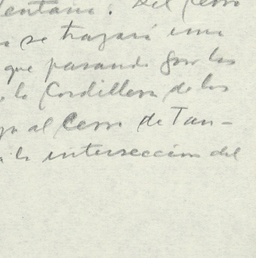 Del Cerro
se trazará una
que pasando por las
la Cordillera de los
al Cerro de Tan-
la intersección del